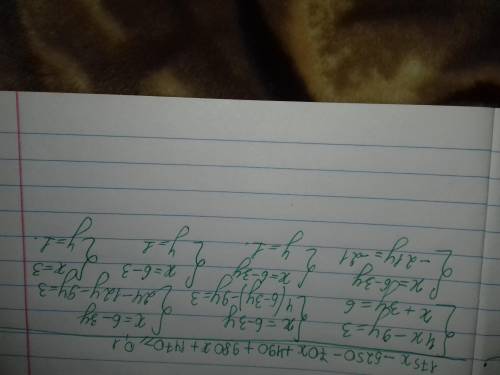 175x - 5250 - 70x + 490 + 980x + 1470, 0,1
{ 4x - 9y = 3
{ x + 3y = 6
{ x = 6 - 3y
{ 4(6-3y) - 9y = 3
{ x = 6 - 3y
{ 24 - 12y - 9y = 3
{ x = 6 - 3y
{ -21y = -21
{ x = 6 - 3y
{ y = 1.
{ x = 6 - 3
{ y = 1
{ x = 3
{ y = 1.